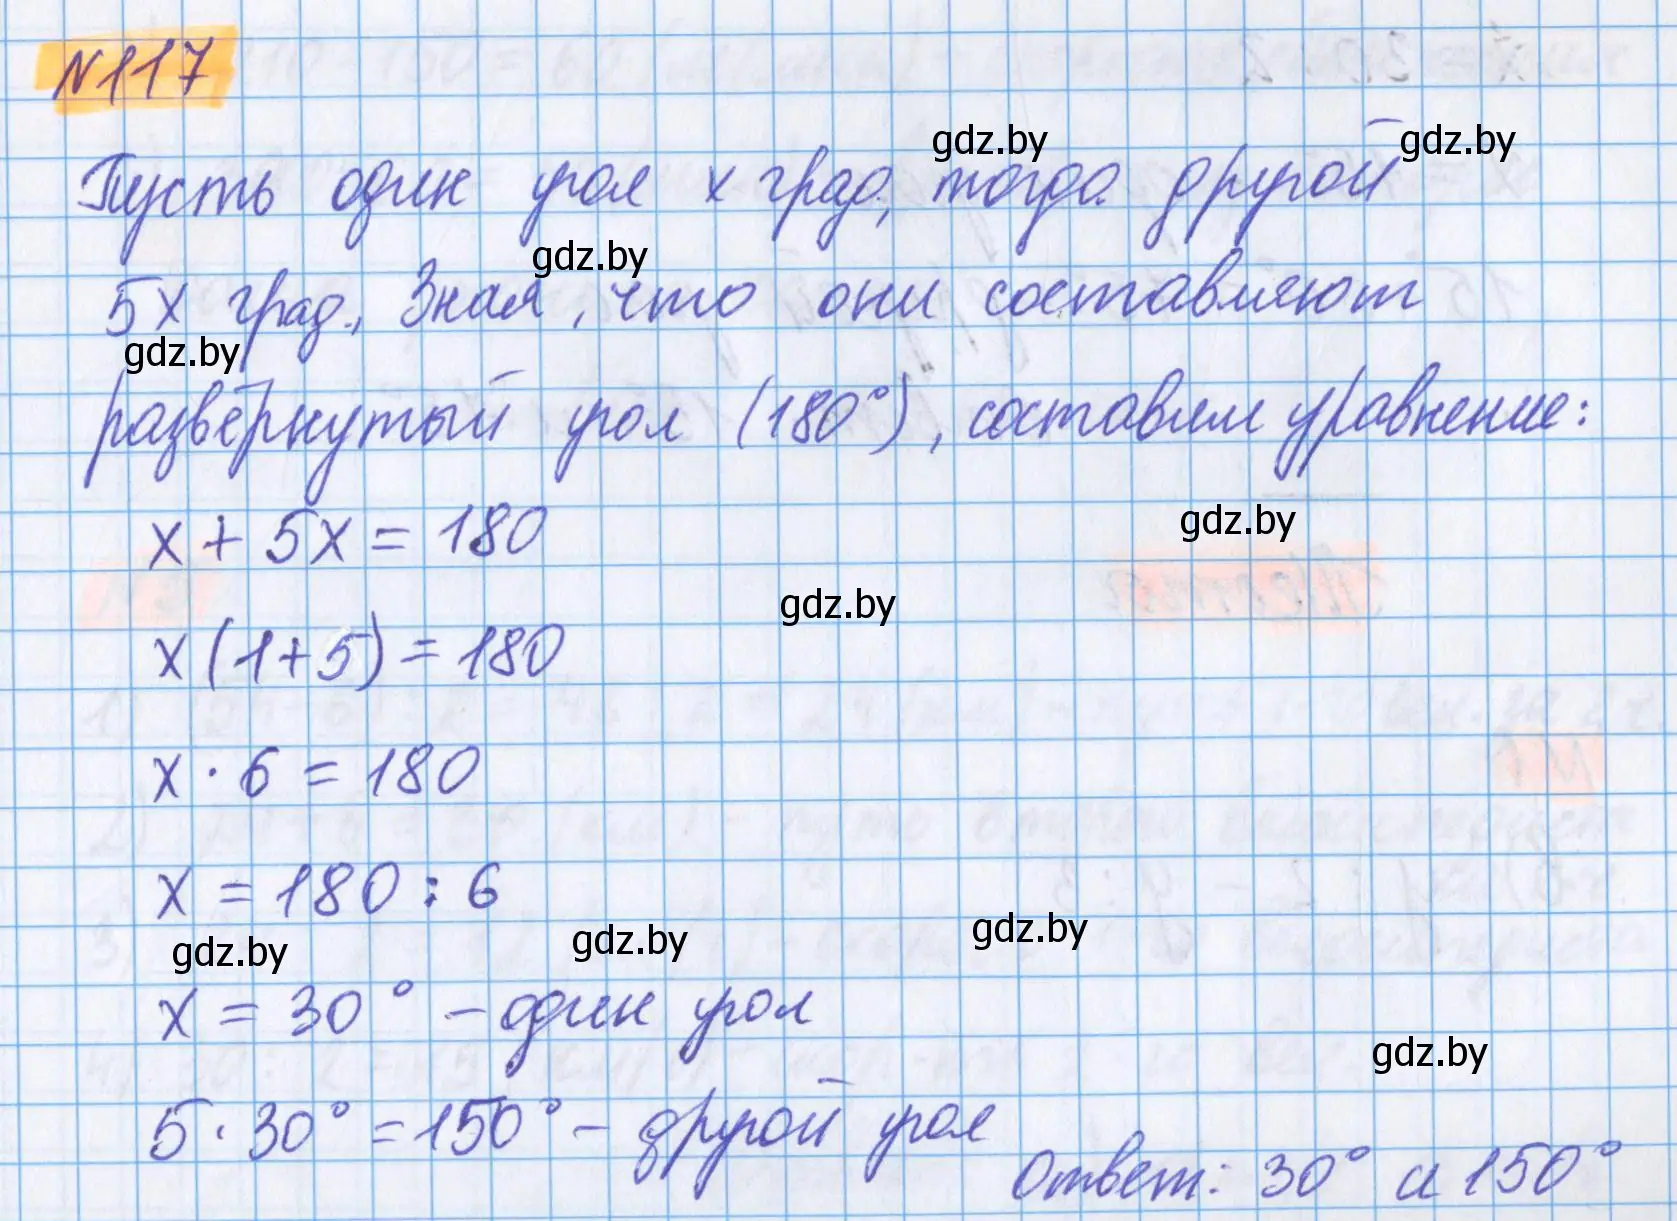 №117
gdz.by gdz.by
Пусть один угол x град, тогда другой
gdz.by
5x град., Зная, что они составляют
gdz.by
развёрнутый угол (180°), составим уравнение:
x + 5x = 180
gdz.by
gdz.by
x(1+5) = 180
x · 6 = 180
x = 180 : 6
gdz.by gdz.by gdz.by
x = 30° – один угол
gdz.by
5 · 30° = 150° – другой угол
Ответ: 30° и 150°